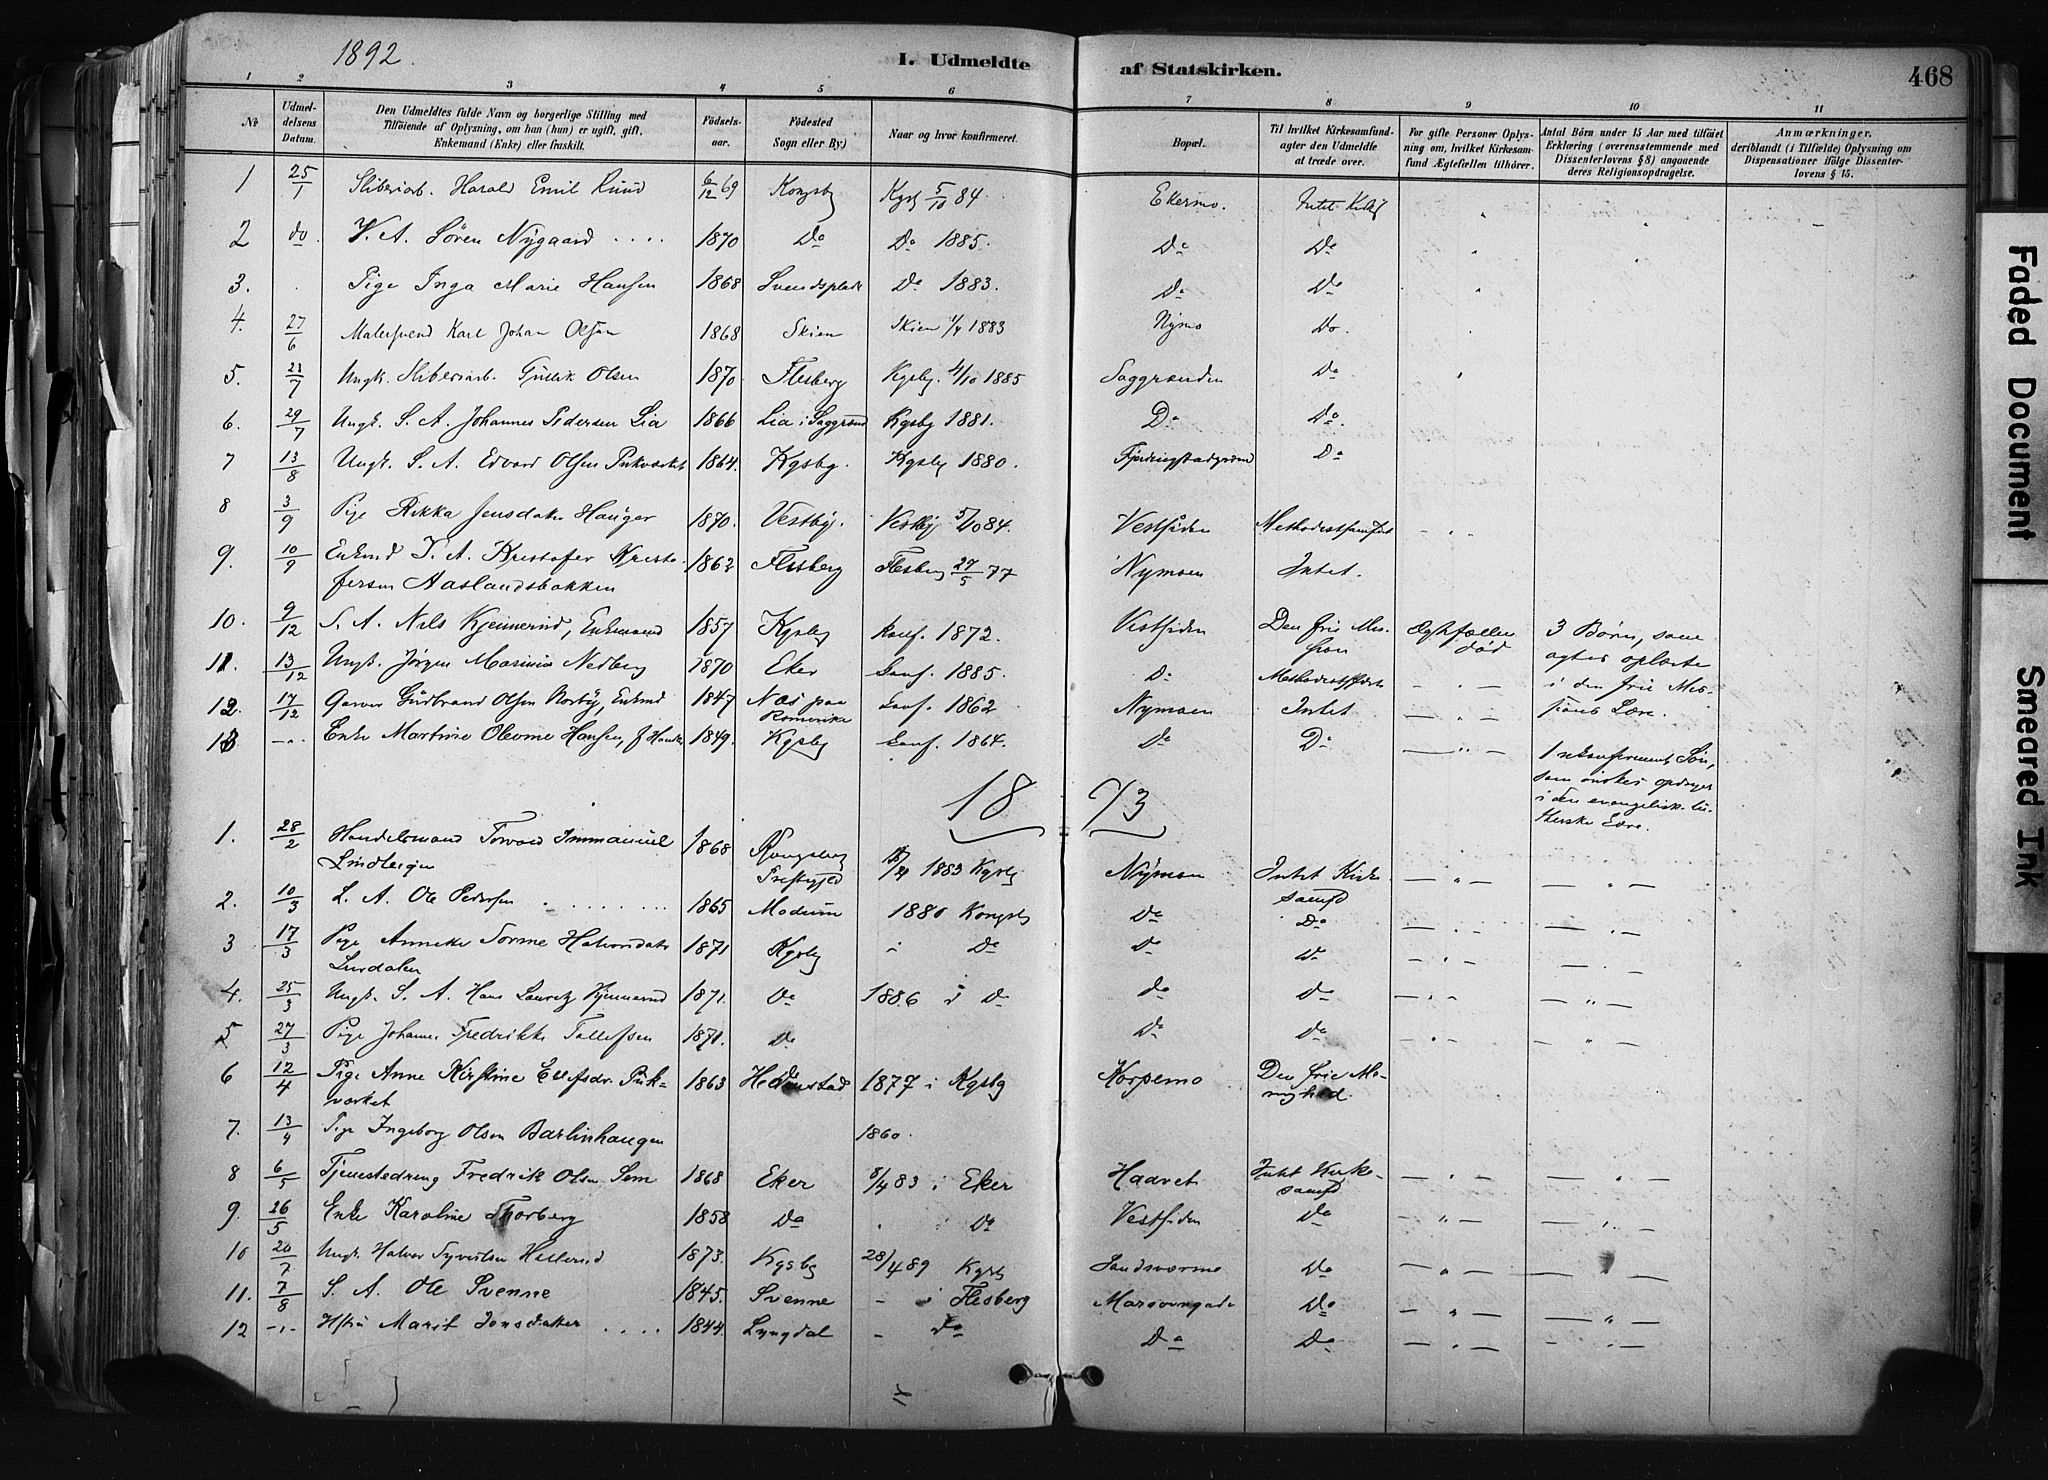 1892.
I. Udmeldte af Statskirken.
468
1 2 3 4 5 6 7 8 9 10 11
No
Udmel-
delsens
Datum.
Den Udmeldtes fulde Navn og borgerlige Stilling med
Tilføiende af Oplysning, om han (hun) er ugift, gift,
Enkemand (Enke) eller fraskilt.
Fødsels-
aar.
Fødested
Sogn eller By)
Naar og hvor konfirmeret.
Bopæl.
Til hvilket Kirkesamfund
agter den Udmeldte
at træde over.
For gifte Personer Oplys-
ning om, hvilket Kirkesam-
fund Ægtefællen tilhører.
Antal Børn under 15 Aar med tilføiet
Erklæring (overensstemmende med
Dissenterlovens § 8) angaaende
deres Religionsopdragelse.
Anmærkninger,
deriblandt (i Tilfælde) Oplysning om
Dispensationer ifølge Dissenter-
lovens § 15.
1 25/1 Sliberiarb. Harald Emil Ruud 6/12 69 Kongsbg Kgsb 5/10 84 Ekermo. Intet
2 do. V. A. Søren Nygaard .... 1870 Do Do 1885. Do Do
3. Pige Inga Marie Hansen 1868 Do 1883. Do Do
4. 27/6 Malersvend Karl Johan Olsen 1868 Skien Skien 1883 Nymo Do.
5. 23/7 Ungk. Sliberiarb. Gullik Olsen 1870 Flesberg Kgsbg. 4/10 1885 Saggrenden Do
6. 29/7 Ungk. S. A. Johannes Pedersen Lia 1866 Lia i Saggrend Kgsbg 1881. Do Do.
7 13/8 Ungk. S. A. Edvard Olsen Pukværket 1864. Kgsbg. Kgsbg 1880. Do
8 3/9 Pige Rikka Jensdatter Hauger 1870. Vestby. Vestby 5/10 84. Vestsiden Methodistsamfund
9. 10/9 Enkmd V. A. Kristofer Kristo-
fersen Aaslandsbakken 1862 Flesberg Flesberg 27/5 77 Nymoen Intet.
10. 9/12 S. A. Nils Kjennerud, Enkemand 1857 Kgsbg konf. 1872. Vestsiden Den frie Mis-
sion Ægtefællen
død 3 Børn, som
agtes oplærte
i den frie Mis-
sions Lære.
11 13/12 Ungk. Jørgen Marinius Nedberg 1870 Eker konf. 1885. Do
12 17/12 Garver Gudbrand Olsen Norby, Enkmd 1847 Næs paa
Romerike konf. 1862 Nymoen Intet
13 -"- Enke Martine Oleone Hansen, f. 1849. Kgsbg konf. 1864. Do Do 1 ukonfirmeret Søn,
som ønskes opdraget
i den evangelisk-lu-
therske Lære.
18 93
1. 28/2 Handelsmand Torvald Immanuel
1868 Kongsberg
Prestegjeld 1883 Kgsbg Nymoen Intet Kirke
samfd
2. 10/3 L. A. Ole Pedersen 1865 Modum 1880 Kongsb Do Do
3 17/3 Pige Anneke Halvorsdatter
Lurdalen 1871 Kgsbg i Do Do Do
4. 25/3 Ungk. S. A. Hans Lauritz Kjennerud 1871. Do 1886 i Do do Do
5 27/3 Pige Johanne Fredrikke Tollefsen 1871. Do Do Do
6 12/4 Pige Anne Kirstine Ellefsdr. Puk-
værket 1863 Hedenstad 1877 i Kgsbg Korpemo Den frie Me-
nighed.
7. 13/4 Pige Ingeborg Olsen Barlinhaugen 1860.
8 6/5 Tjenestedreng Fredrik Olsen Sem 1868 Eker 8/4 83 i Eker Haavet Intet Kirke-
samfd
9. 26/5 Enke Karoline Thorberg 1858 Do Do Vestsiden Do
10 20/7 Ungk. Halvor 1873. Kgsbg 28/4 89 Kgsb Sandsværmo Do
11. 7/8 S. A. Ole Svenne 1845. Svenne - i Flesberg Do
12 -"- Hstru Marit Jonsdatter .... 1844. Lyngdal - do Do Do
Faded Document
Smeared Ink